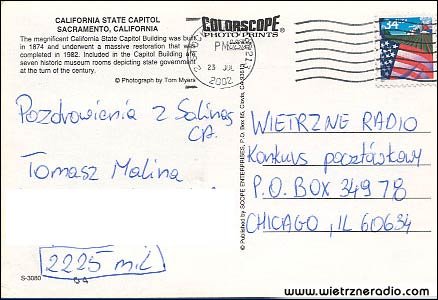 CALIFORNIA STATE CAPITOL
SACRAMENTO, CALIFORNIA
The magnificent California State Capitol Building was built
in 1874 and underwent a massive restoration that was
completed in 1982. Included in the Capitol Building are
seven historic museum rooms depicting state government
at the turn of the century.
© Photograph by Tom Myers
COLORSCOPE
PHOTO PRINTS
PM
23 JUL
2002
34
Pozdrowienia z Salinas
CA.
Tomasz Malina
2225 mil
S-3080
Published by SCOPE ENTERPRISES, P.O. Box
WIETRZNE RADIO
Konkurs pocztówkowy
P.O. BOX 34978
CHICAGO, IL 60634
www.wietrzneradio.com